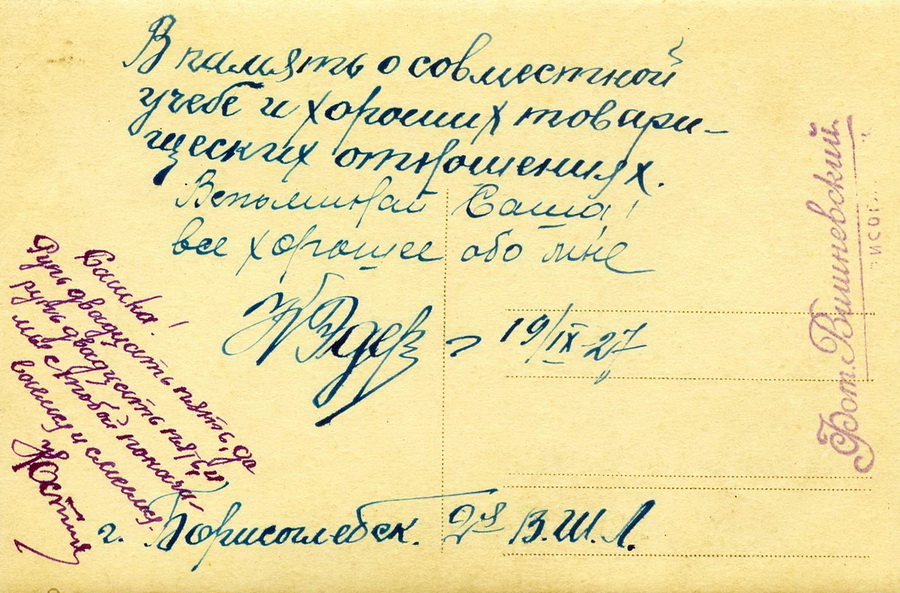 В память о совместной
учебе и хороших товари-
щеских отношениях.
Вспоминай Саша!
все хорошее обо мне
19/IX-27
г. Борисоглебск. 2ая В.Ш.Л.
Сашка!
Рупь двадцать пять, да
рупь двадцать пять и
мы с тобой
Фот. Вишневский